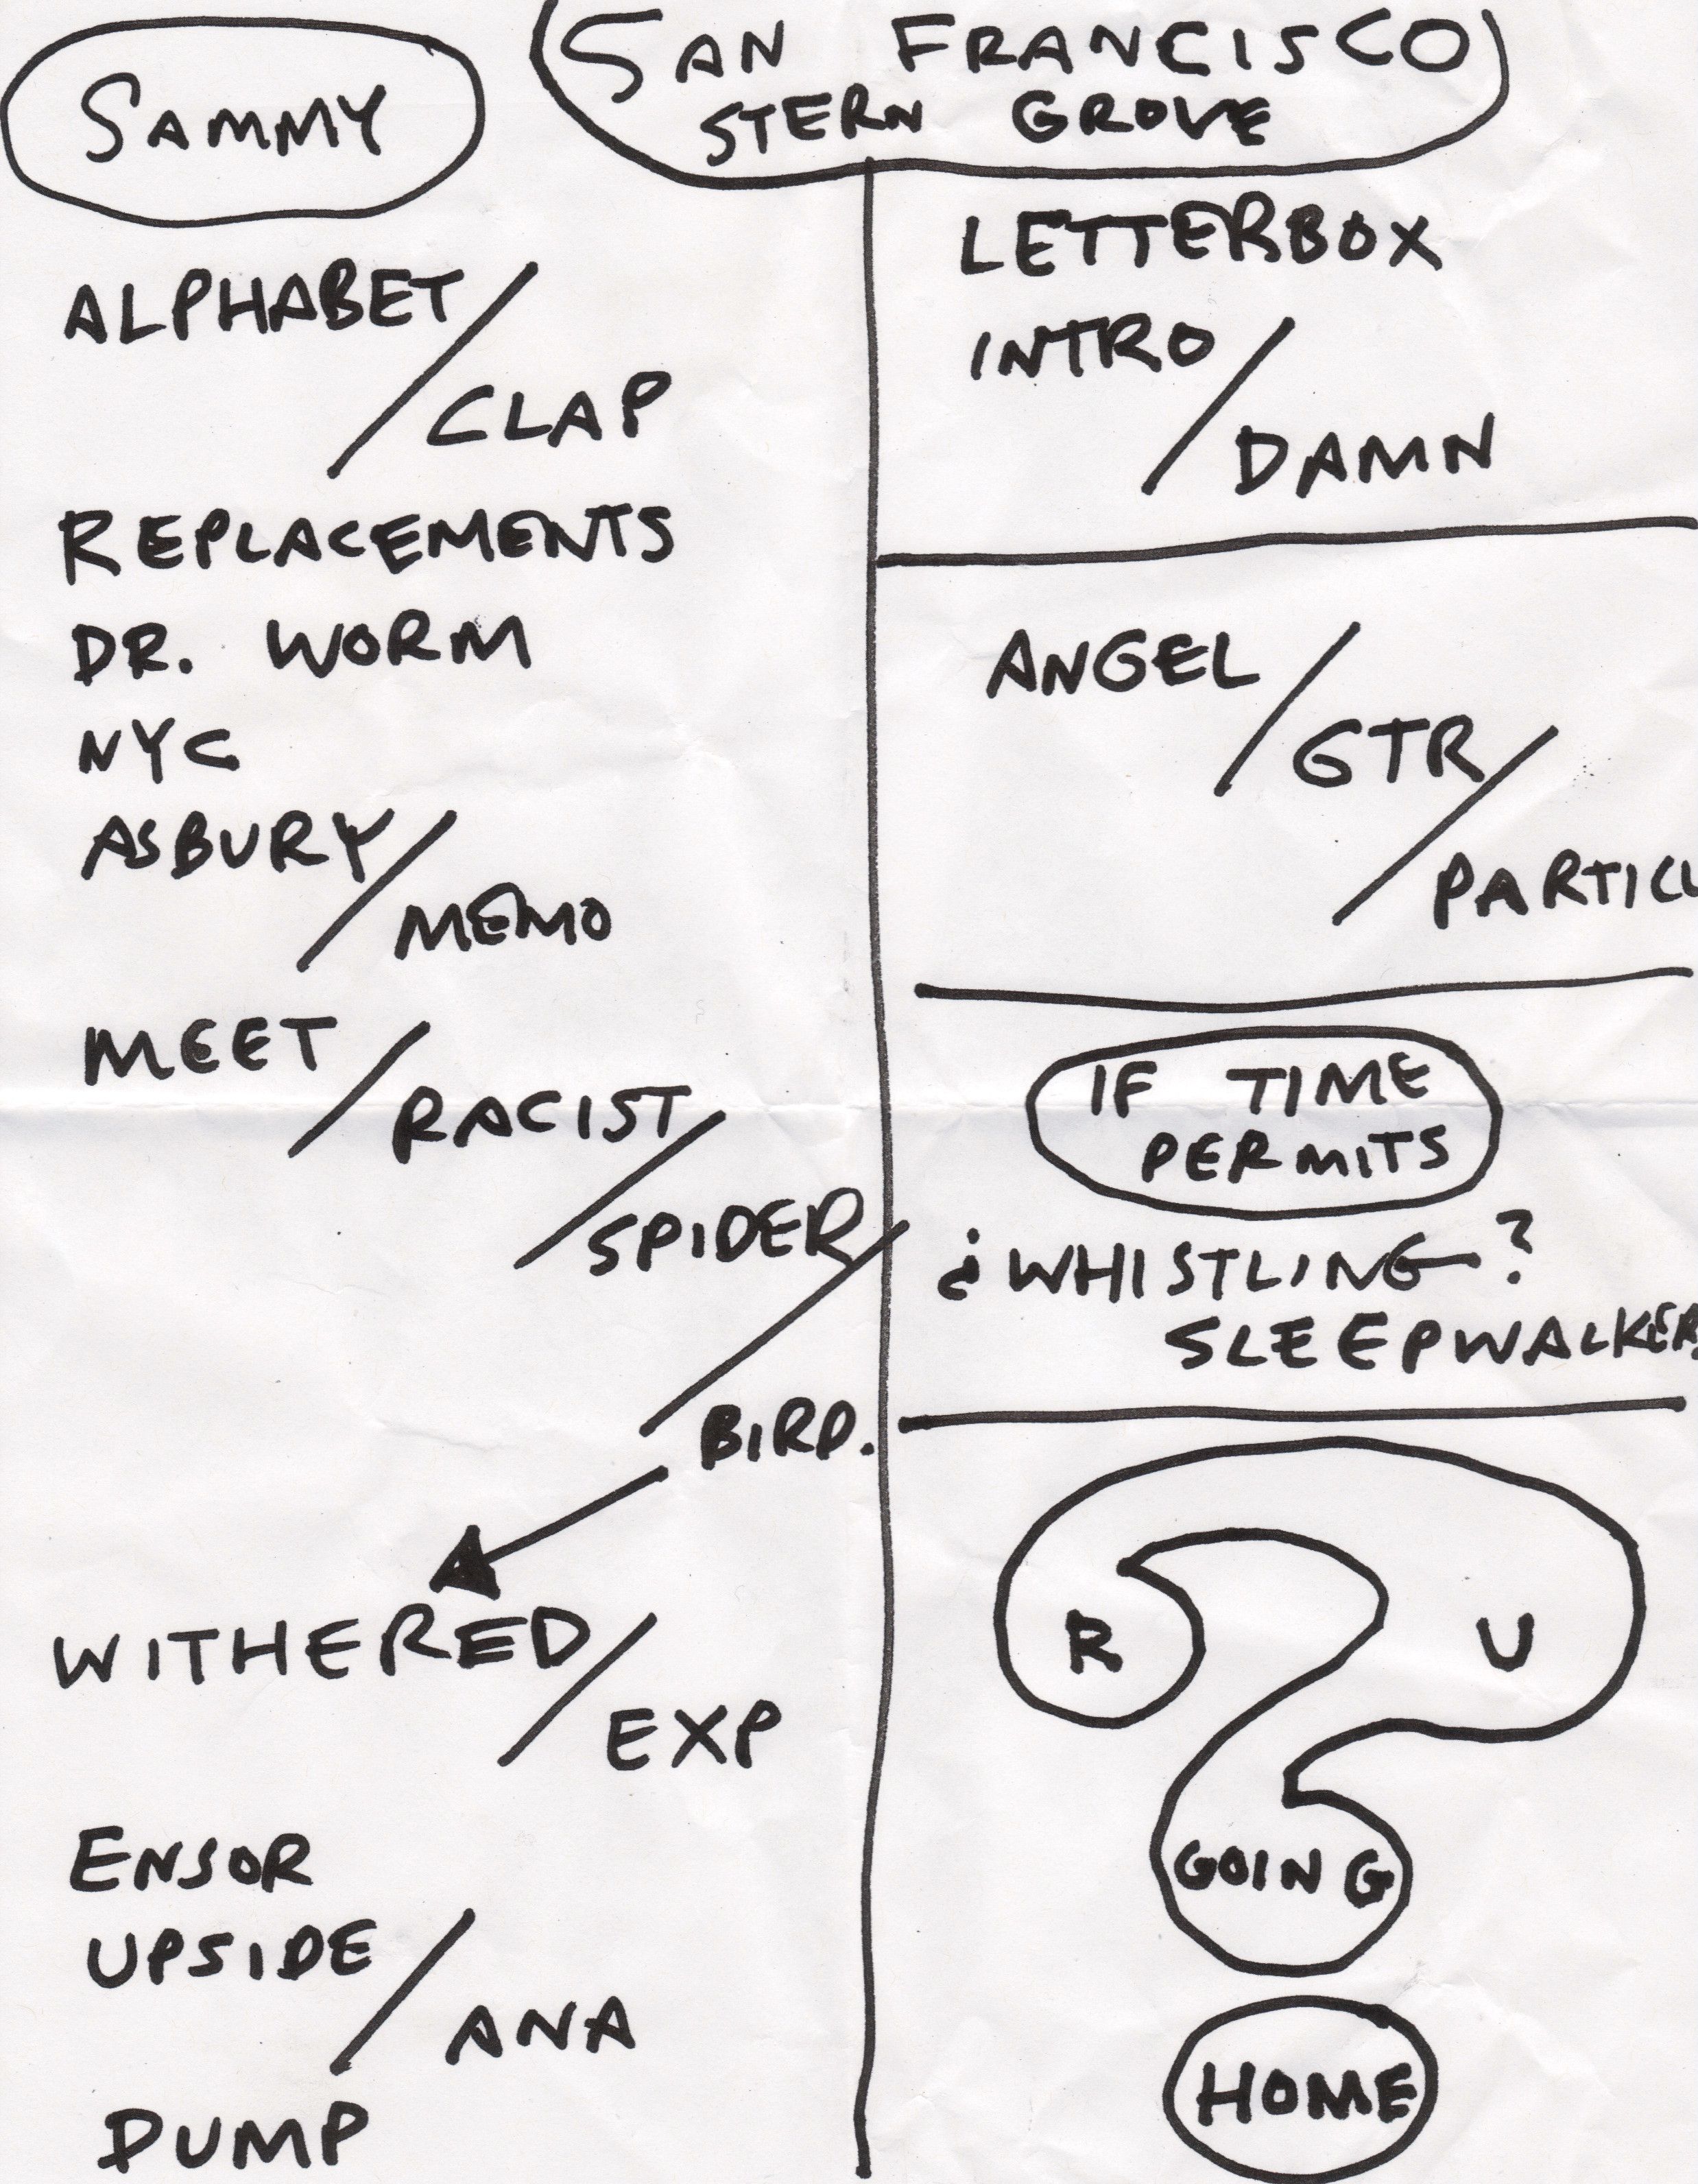 SAMMY
ALPHABET/
CLAP
REPLACEMENTS
DR. WORM
NYC
ASBURY/
MEMO
MEET/
RACIST/
SPIDER/
BIRD.
WITHERED/
EXP
ENSOR
UPSIDE/
ANA
DUMP
SAN FRANCISCO
STERN GROVE
LETTERBOX
INTRO/
DAMN
ANGEL/
GTR/
PARTICL
IF TIME
PERMITS
¿WHISTLING?
SLEEPWALKERS
R U
GOING
HOME